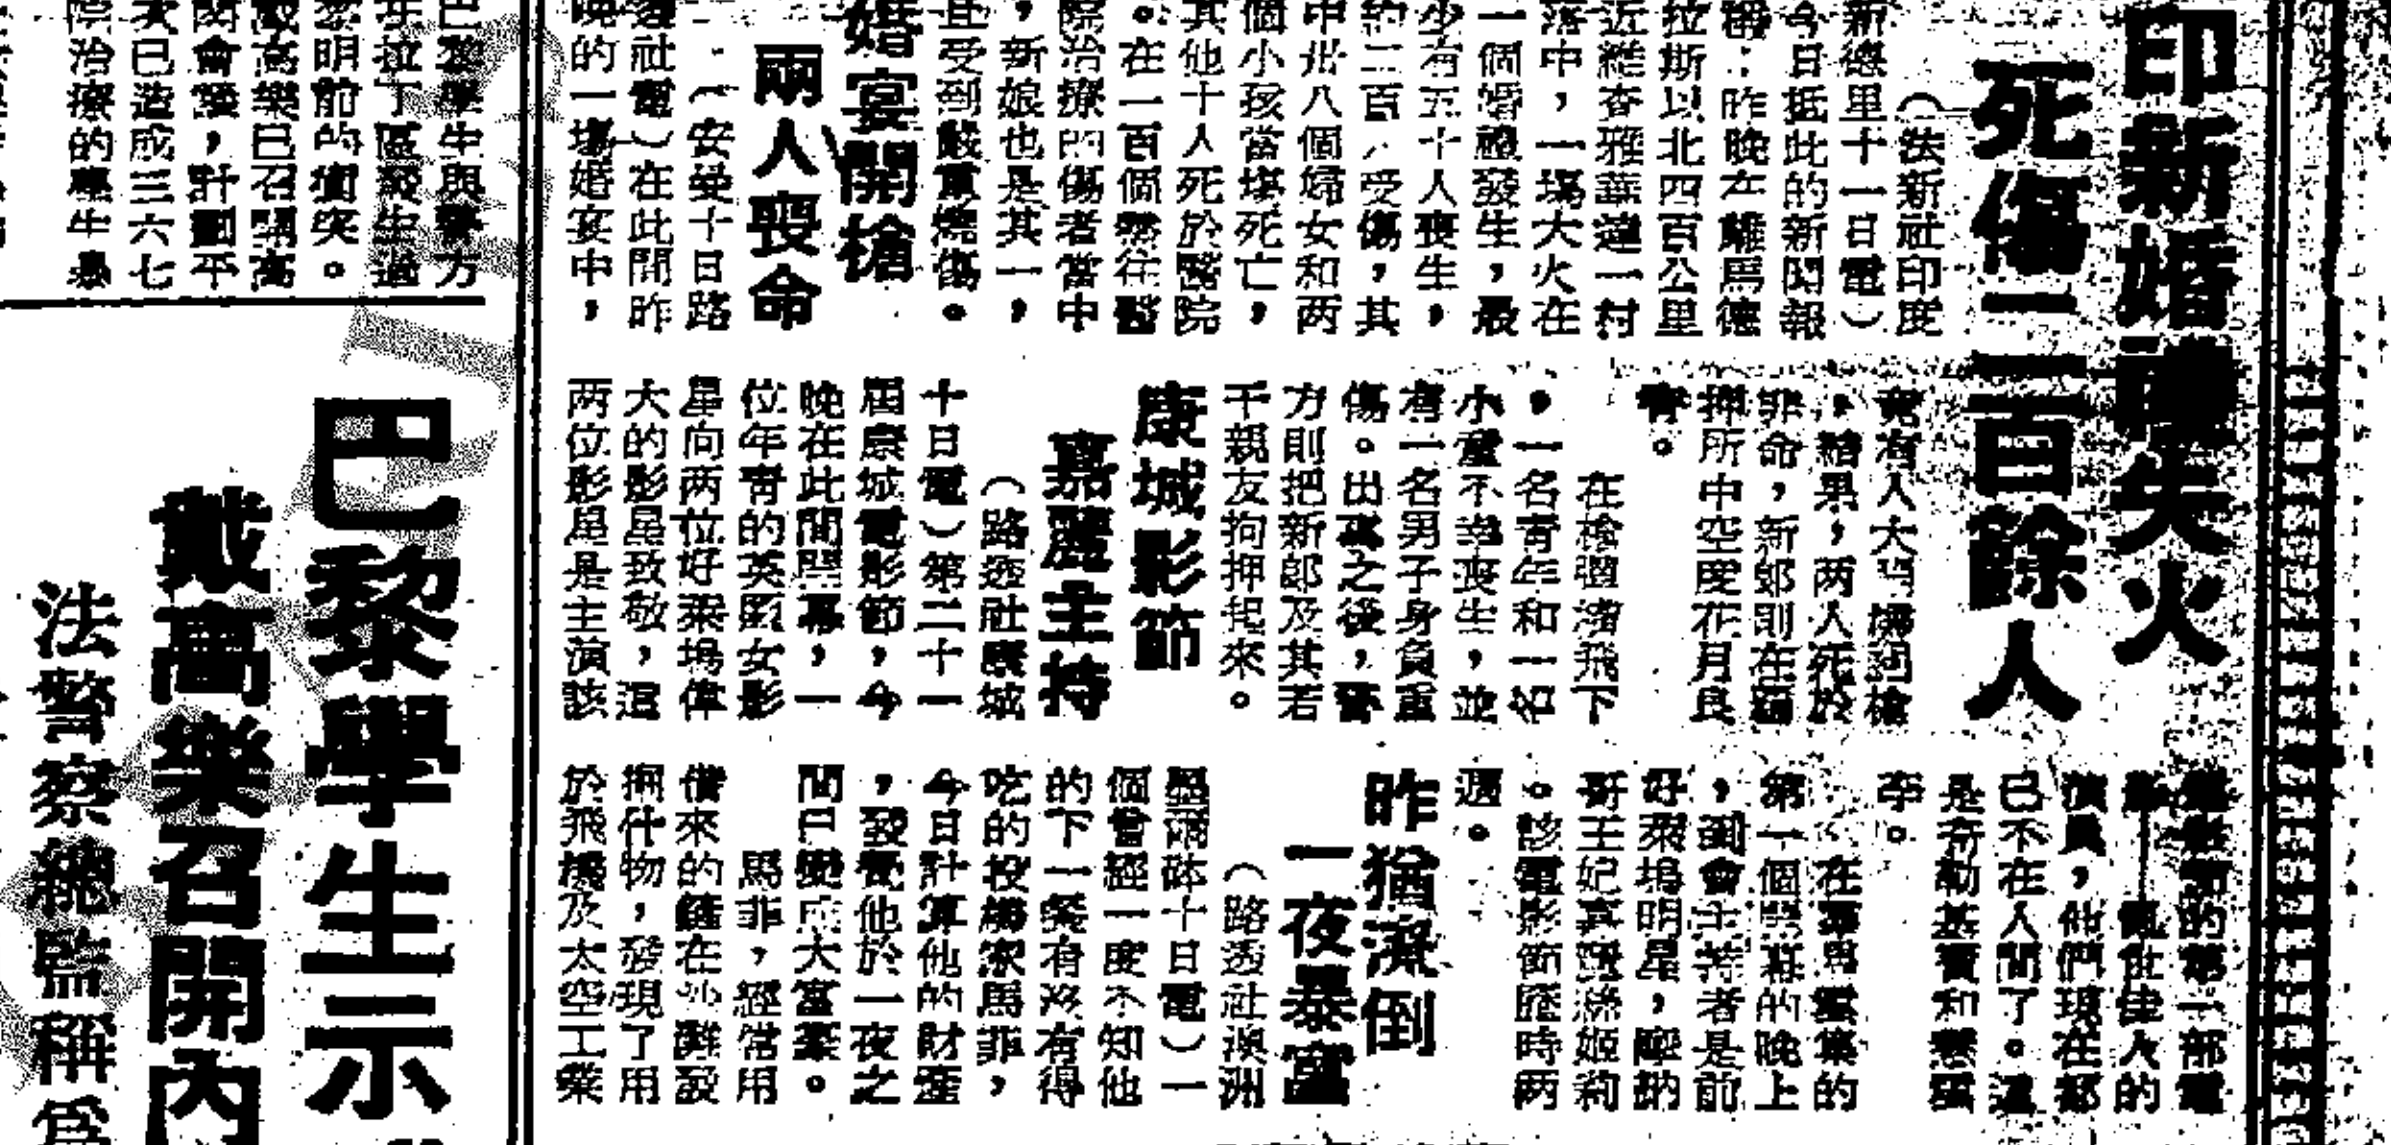 印新婚禮失火
死傷二百餘人
（法新社印度
新德里十一日電）
今日抵此的新聞報
稱：昨晚在離馬德
拉斯以北四百公里
近維查雅華達一村
落中，一塲大火在
一個婚禮發生，最
少有五十人喪生，
約二百人受傷，其
中卅八個婦女和两
個小孩當塲死亡，
其他十人死於醫院
。在一百個送往醫
院治療的傷者當中
，新娘也是其一，
且受到嚴重燒傷。
婚宴開槍
兩人喪命
（安曼十日路
透社電）在此間昨
晚的一塲婚宴中，
竟有人大
，結果，两人死於
非命，新郎則在
押所中空度花月良
宵。
在槍彈飛下
，一名青年和一名
小童不幸喪生，並
有一名男子身負重
傷。出事之後，警
方則把新郎及其若
干親友拘押起來。
康城影節
嘉麗主持
（路透社康城
十日電）第二十一
屆康城電影節，今
晚在此間開幕，一
位年青的英國女影
星向两位好萊塢偉
大的影星致敬，這
两位影星是主演該
的第一部電
影——亂世佳人的
演員，他們現在都
已不在人間了。這
是奇勒基寶和慧雲
李。
在羣星雲集的
第一個開幕的晚上
，到會主持者是前
好萊塢明星，摩納
哥王妃嘉麗絲姬莉
。該電影節歷時两
週。
昨猶潦倒
一夜暴富
（路透社澳洲
墨爾砵十日電）一
個曾經一度不知他
的下一餐有沒有得
吃的投機家馬菲，
今日計算他的財產
，發覺他於一夜之
間已變成大富豪。
馬菲，經常用
借來的錢在沙灘發
掘什物，發現了用
於飛機及太空工業
巴黎學生與警方
在拉丁區發生過
黎明前的衝突。
戴高樂已召開高
閣會議，計劃平
大已造成三六七
治療的學生暴
巴黎學生示
戴高樂召開內
法警察總監稱爲